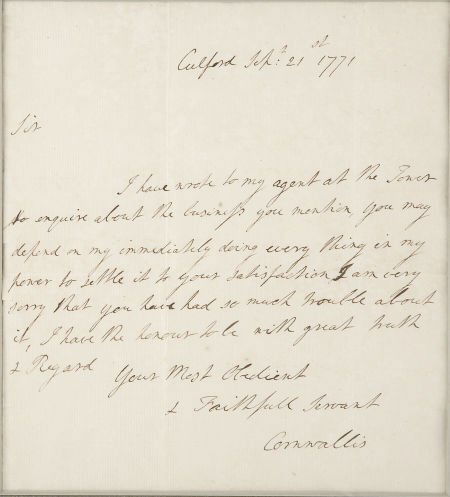 Culford Sep:t 21st 1771
Sir
I have wrote to my agent at the Tower
to enquire about the business you mention, you may
depend on my immediately doing every thing in my
power to settle it to your satisfaction I am very
sorry that you have had so much trouble about
it, I have the honour to be with great truth
& Regard
Your Most Obedient
& Faithfull Servant
Cornwallis